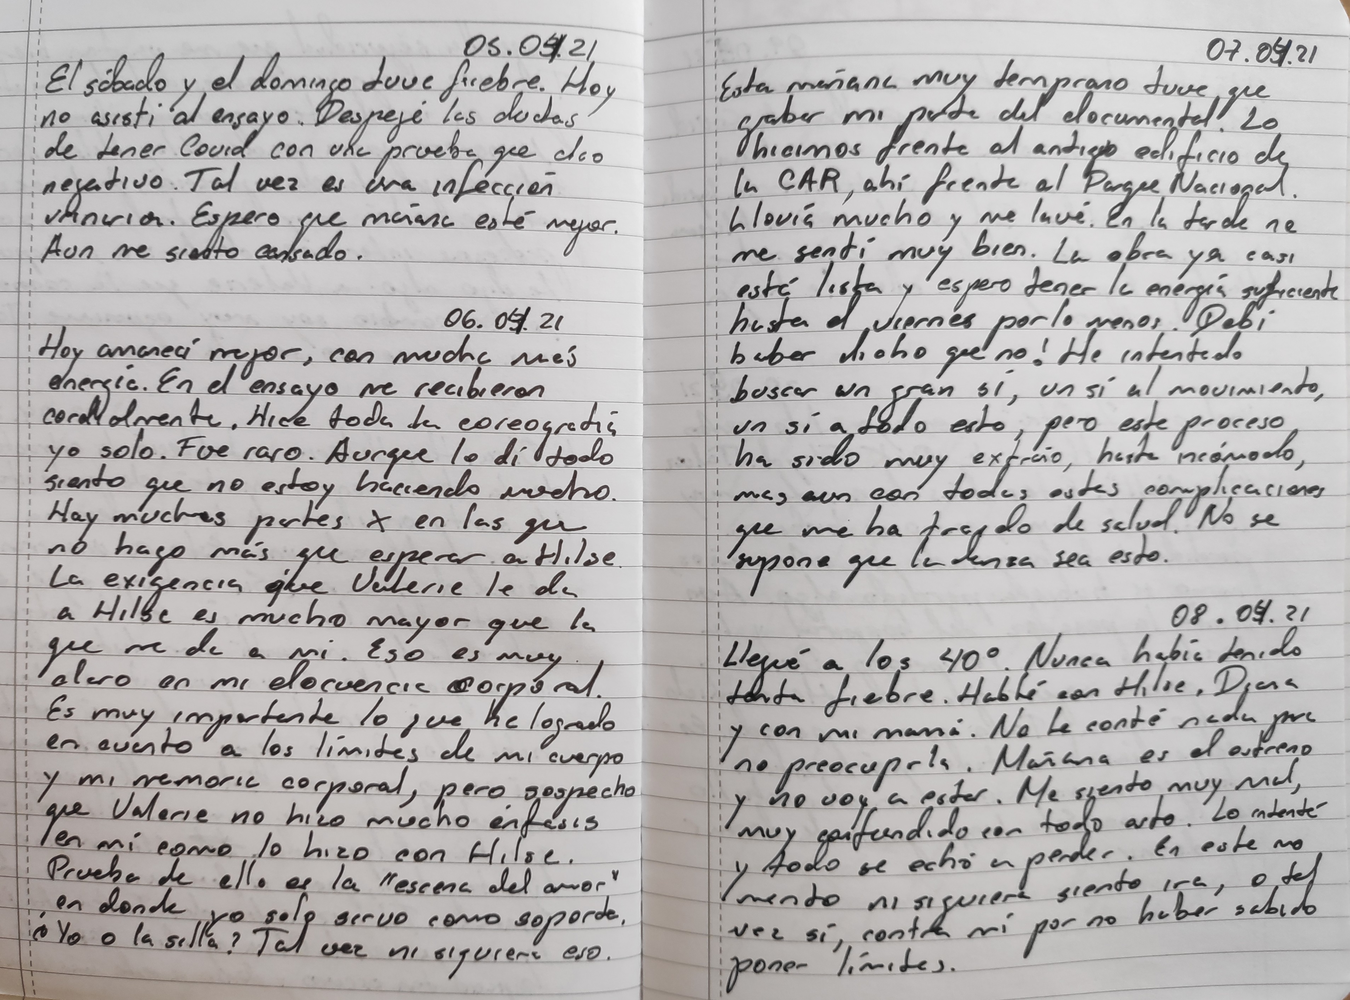 05.04.21
El sábado y el domingo tuve fiebre. Hoy
no asistí al ensayo. Despejé las dudas
de tener Covid con una prueba que dio
negativo. Tal vez es una infección
urinaria. Espero que mañana esté mejor.
Aun me siento cansado.
06.04.21
Hoy amanecí mejor, con mucha más
energía. En el ensayo me recibieron
cordialmente. Hice toda la coreografía
yo solo. Fue raro. Aunque lo di todo
siento que no estoy haciendo mucho.
Hay muchas partes X en las que
no hago más que esperar a Hilse.
La exigencia que Valerie le da
a Hilse es mucho mayor que la
que me da a mi. Eso es muy
claro en mi elocuencia corporal.
Es muy importante lo que he logrado
en cuanto a los límites de mi cuerpo
y mi memoria corporal, pero sospecho
que Valerie no hizo mucho énfasis
en mí como lo hizo con Hilse.
Prueba de ello es la "escena del amor"
en donde yo solo sirvo como soporte.
¿Yo o la silla? Tal vez ni siquiera eso.
07.04.21
Esta mañana muy temprano tuve que
grabar mi parte del documental. Lo
hicimos frente al antiguo edificio de
la CAR, ahí frente al Parque Nacional.
Llovía mucho y me lavé. En la tarde no
me sentí muy bien. La obra ya casi
está lista y espero tener la energía suficiente
hasta el viernes por lo menos. Debí
haber dicho que no! He intentado
buscar un gran sí, un sí al movimiento,
un sí a todo esto, pero este proceso
ha sido muy extraño, hasta incómodo,
mas aun con todas estas complicaciones
que me ha traído de salud. No se
supone que la danza sea esto.
08.04.21
Llegué a los 40°. Nunca había tenido
tanta fiebre. Hablé con Hilse, Diana
y con mi mamá. No le conté nada para
no preocuparla. Mañana es el estreno
y no voy a estar. Me siento muy mal,
muy confundido con todo esto. Lo intenté
y todo se echó a perder. En este mo
mento ni siquiera siento ira, o tal
vez sí, contra mí por no haber sabido
poner límites.